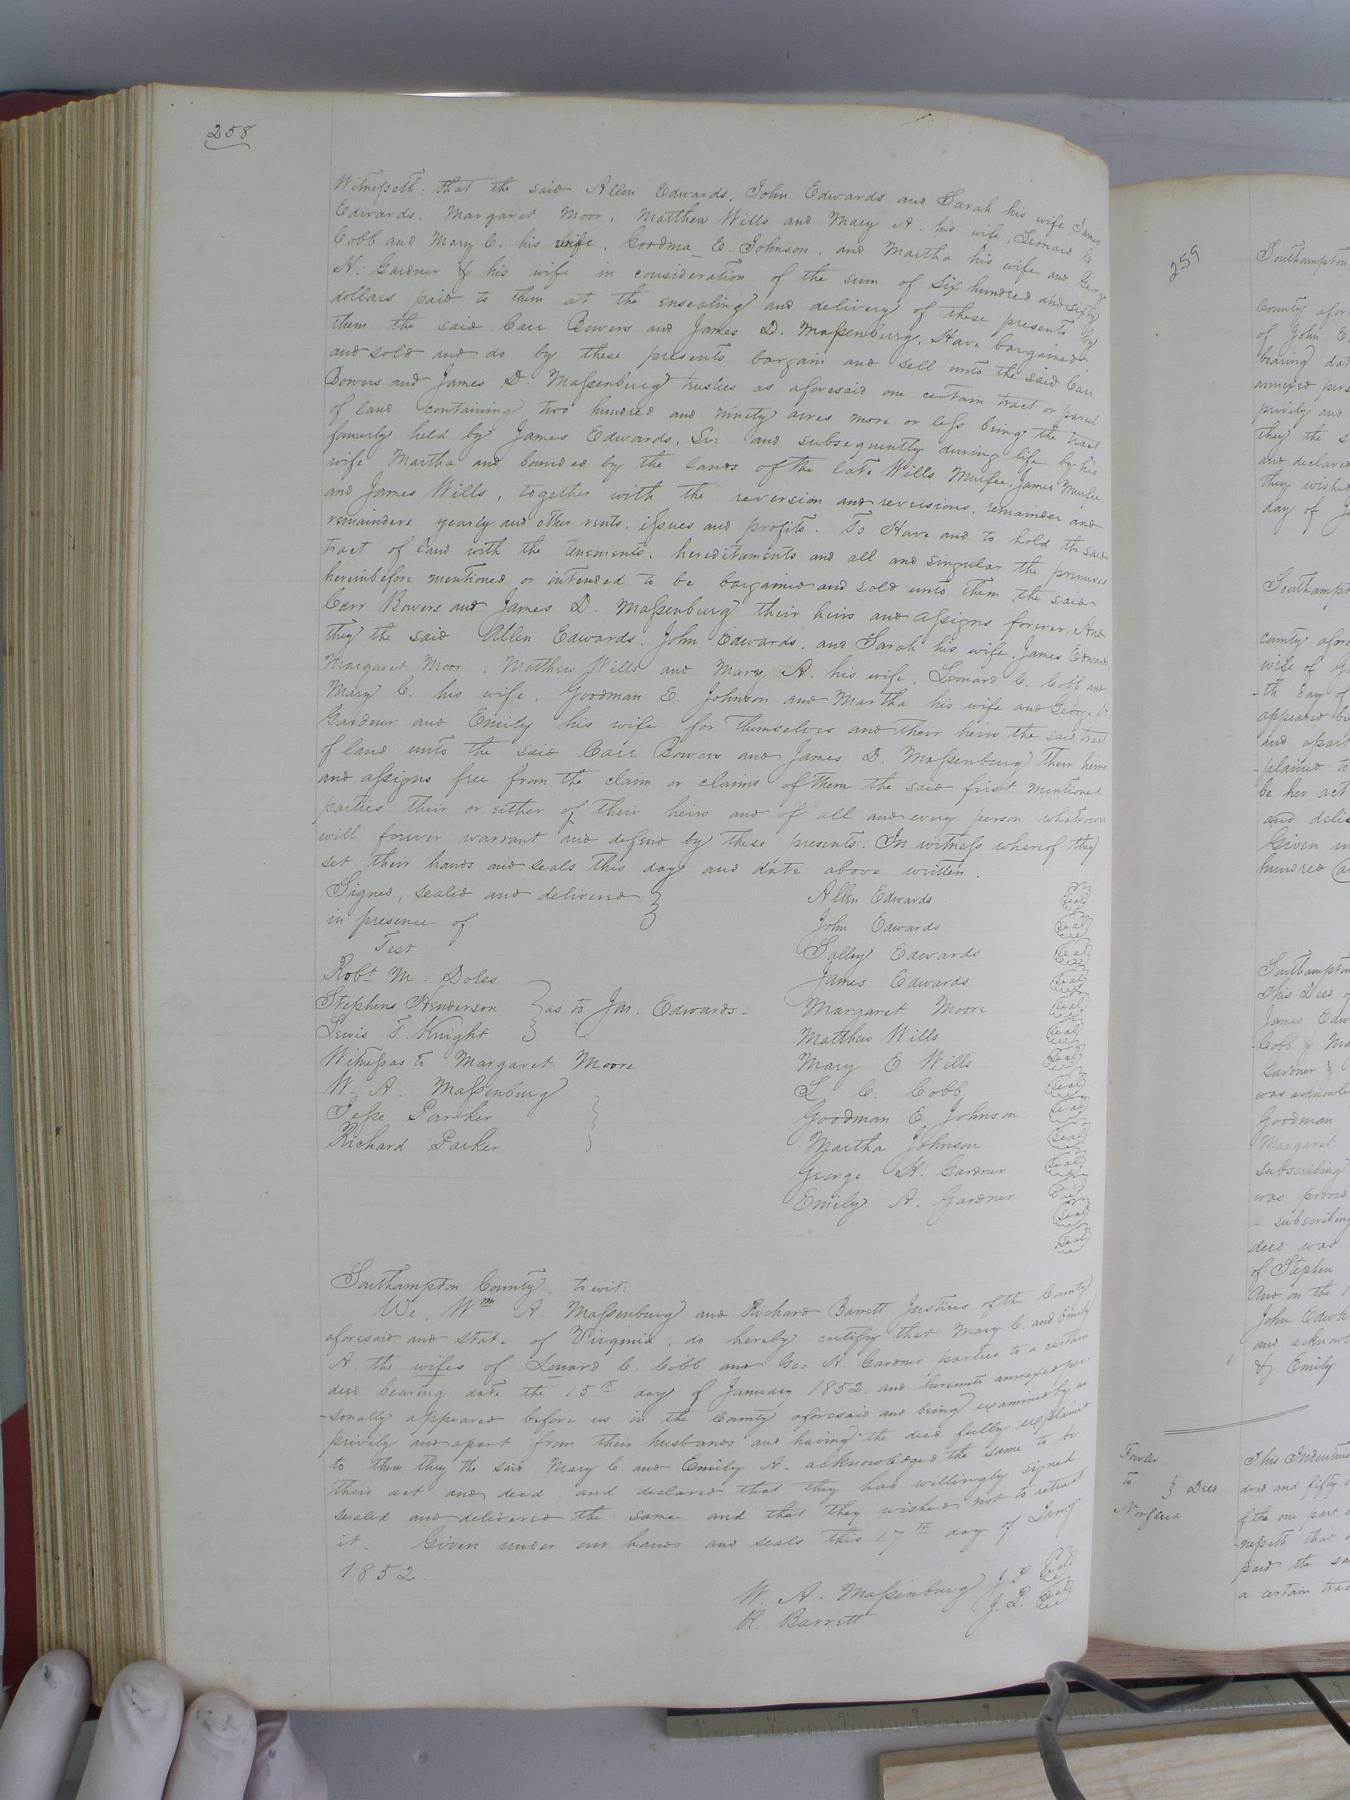 258
Witnesseth: that the said Allen Edwards, John Edwards and Sarah his wife, James
Edwards, Margaret Moor, Matthew Wills and Mary A. his wife, Leonard C.
Cobb and Mary C. his wife, Goodma E. Johnson, and Martha his wife and George
H: Gardner & his wife in consideration of the sum of Six hundred and sixty
dollars paid to them at the ensealing and delivery of these presents by
them the said Carr Bowers and James D. Massenburg, Have bargained
and sold and do by these presents bargain and sell unto the said Carr
Bowers and James D. Massenburg trustees as aforesaid one certain tract or parcel
of land containing two hundred and ninety acres more or less being the tract
formerly held by James Edwards, Sr: and subsequently during life by his
wife Martha and bounded by the lands of the late Wills Murfee, James Murfee
and James Wills, together with the reversion and reversions, remainder and
remainders yearly and other rents, issues and profits. To Have and to hold the said
tract of land with the tenements, hereditaments and all and singular the premises
hereinbefore mentioned or intended to be bargained and sold unto them the said
Carr Bowers and James D. Massenburg their heirs and assigns forever. And
they the said Allen Edwards, John Edwards, and Sarah his wife, James Edwards
Margaret Moor, Matthew Wills and Mary A. his wife, Leonard C. Cobb and
Mary C. his wife, Goodman E. Johnson and Martha his wife and George H
Gardner and Emily his wife for themselves and their heirs the said tract
of land unto the said Carr Bowers and James D. Massenburg their heirs
and assigns free from the claim or claims of them the said first mentioned
parties their or either of their heirs and of all and every person whatsoever
will forever warrant and defend by these presents. In witness whereof they
set their hands and seals this day and date above written.
Signed, sealed and delivered
in presence of
Test
Robt M. Doles
Stephens Henderson } as to Jas. Edwards
Lewis T. Knight
Witness as to Margaret Moore
W. A. Massenburg
Jesse Parker
Richard Parker
Allen Edwards Seal
John Edwards Seal
Salley Edwards Seal
James Edwards Seal
Margaret Moore Seal
Matthew Wills Seal
Mary E Wills Seal
L C. Cobb Seal
Goodman E Johnson Seal
Martha Johnson Seal
George H. Gardner Seal
Emily A. Gardner Seal
Seal
Seal
Southampton County, to wit:
We, Wm A. Massenburg and Richard Barrett Justices of the County
aforesaid and State of Virginia, do hereby certify that Mary C. and Emily
A. the wifes of Lenard C. Cobb and Geo H. Gardner parties to a certain
deed bearing date the 15th day of January 1852, and hereunto annexed per-
-sonally appeared before us in the County aforesaid and being examined by us
privily and apart from their husbands and having the deed fully explained
to them they the said Mary C. and Emily A. acknowledged the same to be
their act and deed and declared that they had willingly signed
sealed and delivered the same and that they wished not to retract
it. Given under our hands and seals this 17th day of Jany
1852.
W. A. Massenburg J.P. Seal
R. Barrett J.P. Seal
259
Southampton
County afore
of John E
bearing dat
annexed pers
privily and
they the s
and declared
they wished
day of J
Southampt
county afore
wife of G
-th day of
appeared be
and apart
-plained to
be her act
and deliv
Given un
hundred an
Southampton
This Deed
James Edw
-Cobb & Ma
Gardner &
was acknowle
Goodman
Margaret
subscribing
was proved
subscribing
deed was
of Stephen
And on the 1
John Edwa
and acknowl
& Emily
Fowler
to } Deed
Norfleet
This Indentur
dred and fifty
of the one part a
-nesseth that
paid the sa
a certain trac